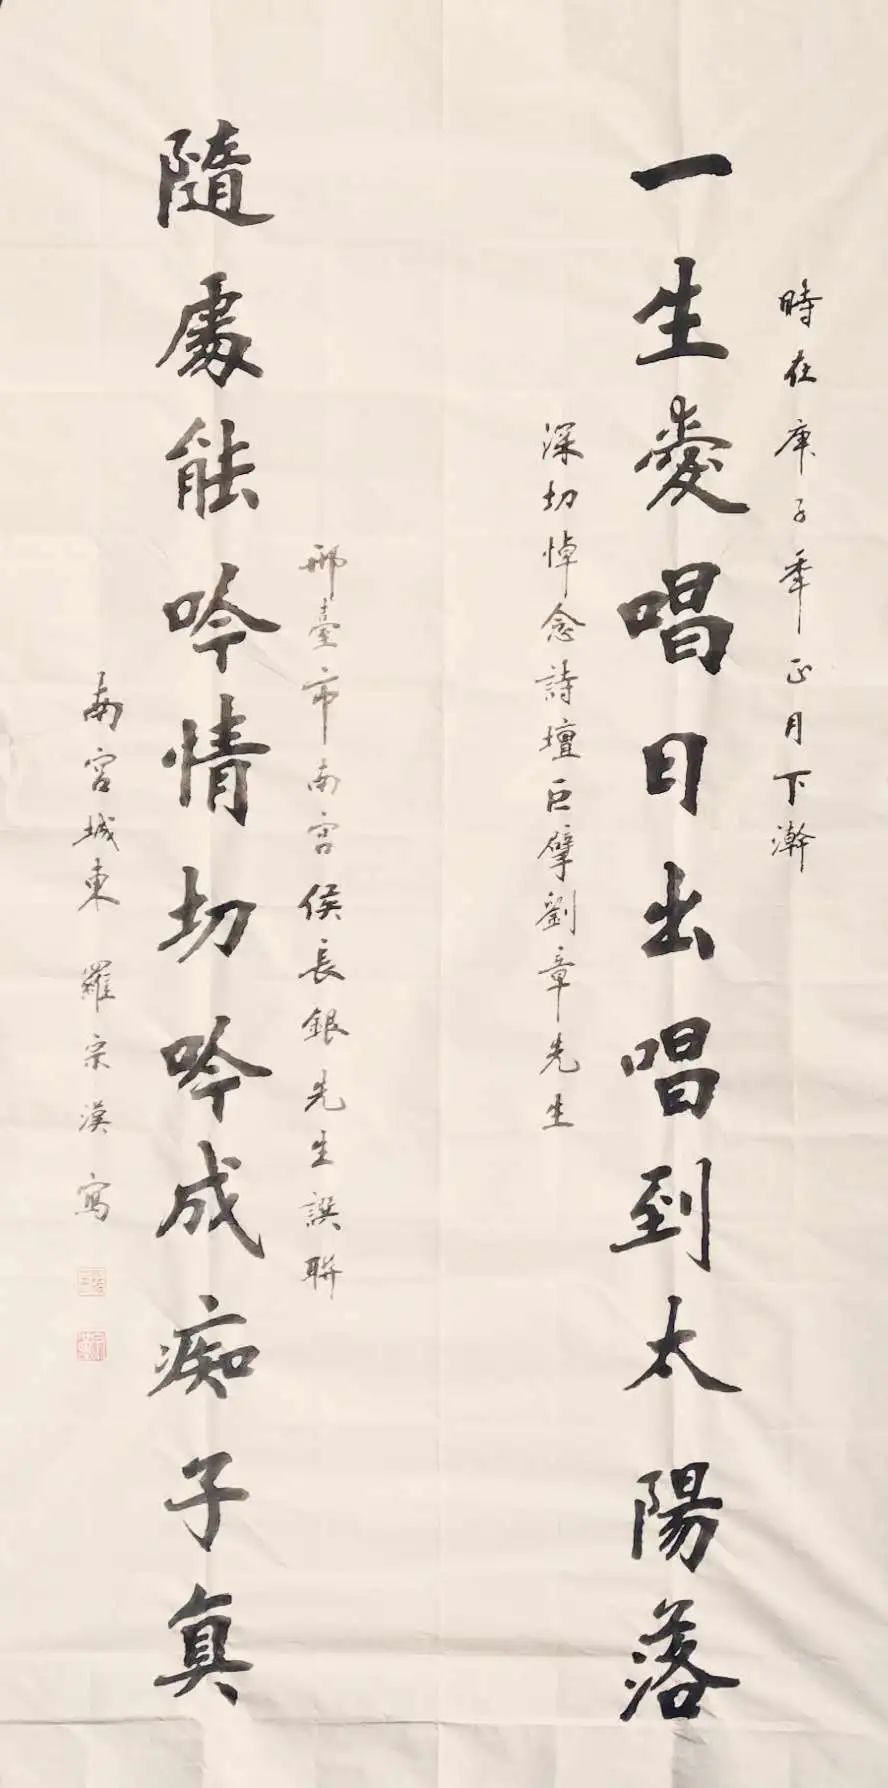 時在庚子年正月下澣
一生愛唱日出唱到太陽落
深切悼念詩壇巨擘劉章先生
邢臺市南宫侯長銀先生譔聯
隨處能吟情切吟成痴子真
南宫城東 羅宗漢寫